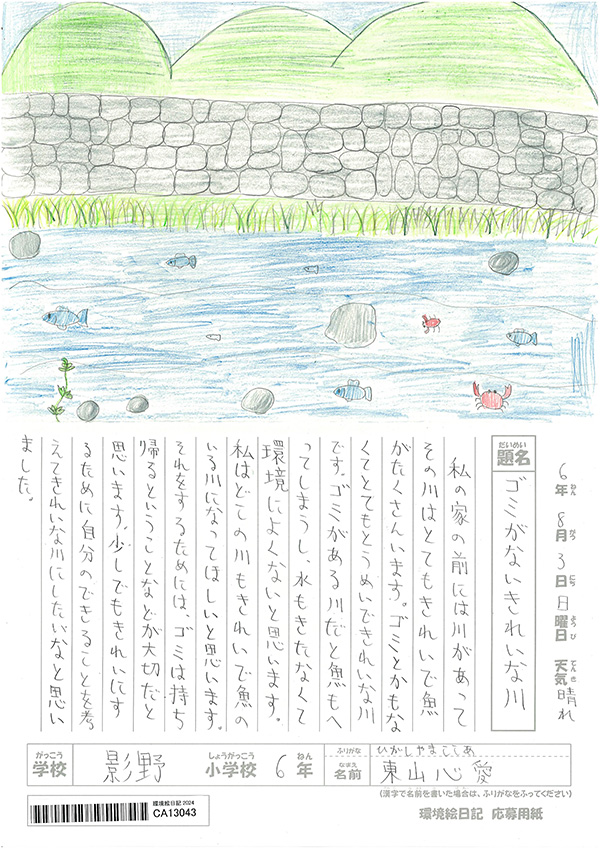 6年 8月 3日 日曜日 天気 晴れ
ねん がつ にち ようび てんき
だいめい
題名
ゴミがないきれいな川
私の家の前には川があって
その川はとてもきれいで魚
がたくさんいます。ゴミとかもな
くてとてもとうめいできれいな川
です。ゴミがある川だと魚もへ
ってしまうし、水もきたなくて
環境によくないと思います。
私はどこの川もきれいで魚の
いる川になってほしいと思います。
それをするためには、ゴミは持ち
帰るということなどが大切だと
思います。少しでもきれいにす
るために自分のできることを考
えてきれいな川にしたいなと思い
ました。
がっこう
学校
影野
しょうがっこう
小学校
6年
ねん
ふりがな
ひがしやまここあ
なまえ
名前
東山心愛
(漢字で名前を書いた場合は、ふりがなをふってください)
環境絵日記2024
CA13043
環境絵日記 応募用紙